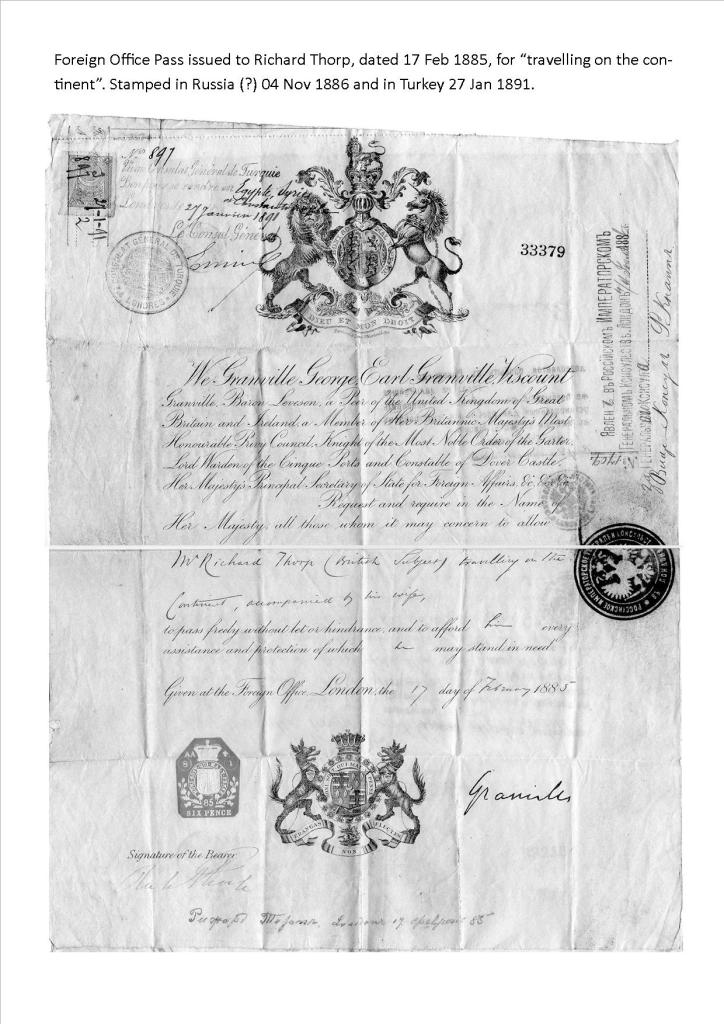 Foreign Office Pass issued to Richard Thorp, dated 17 Feb 1885, for “travelling on the con-
tinent”. Stamped in Russia (?) 04 Nov 1886 and in Turkey 27 Jan 1891.
No 897
Consulat Général de Turquie
Bon pour se rendre en Egypte, Syrie
Londres 27 Janvier 1891
Le Consul Général
897
27-1-91
CONSULAT GÉNÉRAL DE TURQUIE
LONDRES
DIEU ET MON DROIT
33379
ЯВЛЕНЪ ВЪ РОССІЙСКОМЪ ИМПЕРАТОРСКОМЪ
ГЕНЕРАЛЬНОМЪ КОНСУЛЬСТВѢ ВЪ ЛОНДОНѢ 188
We Granville George, Earl Granville, Viscount
Granville, Baron Leveson, a Peer of the United Kingdom of Great
Britain and Ireland, a Member of Her Britannic Majesty's Most
Honourable Privy Council, Knight of the Most Noble Order of the Garter,
Lord Warden of the Cinque Ports and Constable of Dover Castle,
Her Majesty's Principal Secretary of State for Foreign Affairs, &c. &c. &c.
Request and require in the Name of
Her Majesty, all those whom it may concern to allow
Mr Richard Thorp (British Subject) travelling on the
Continent, accompanied by his wife,
to pass freely without let or hindrance, and to afford him every
assistance and protection of which he may stand in need.
Given at the Foreign Office, London, the 17 day of February 1885
85
SIX PENCE
FRANGAS NON FLECTES
Granville
Signature of the Bearer